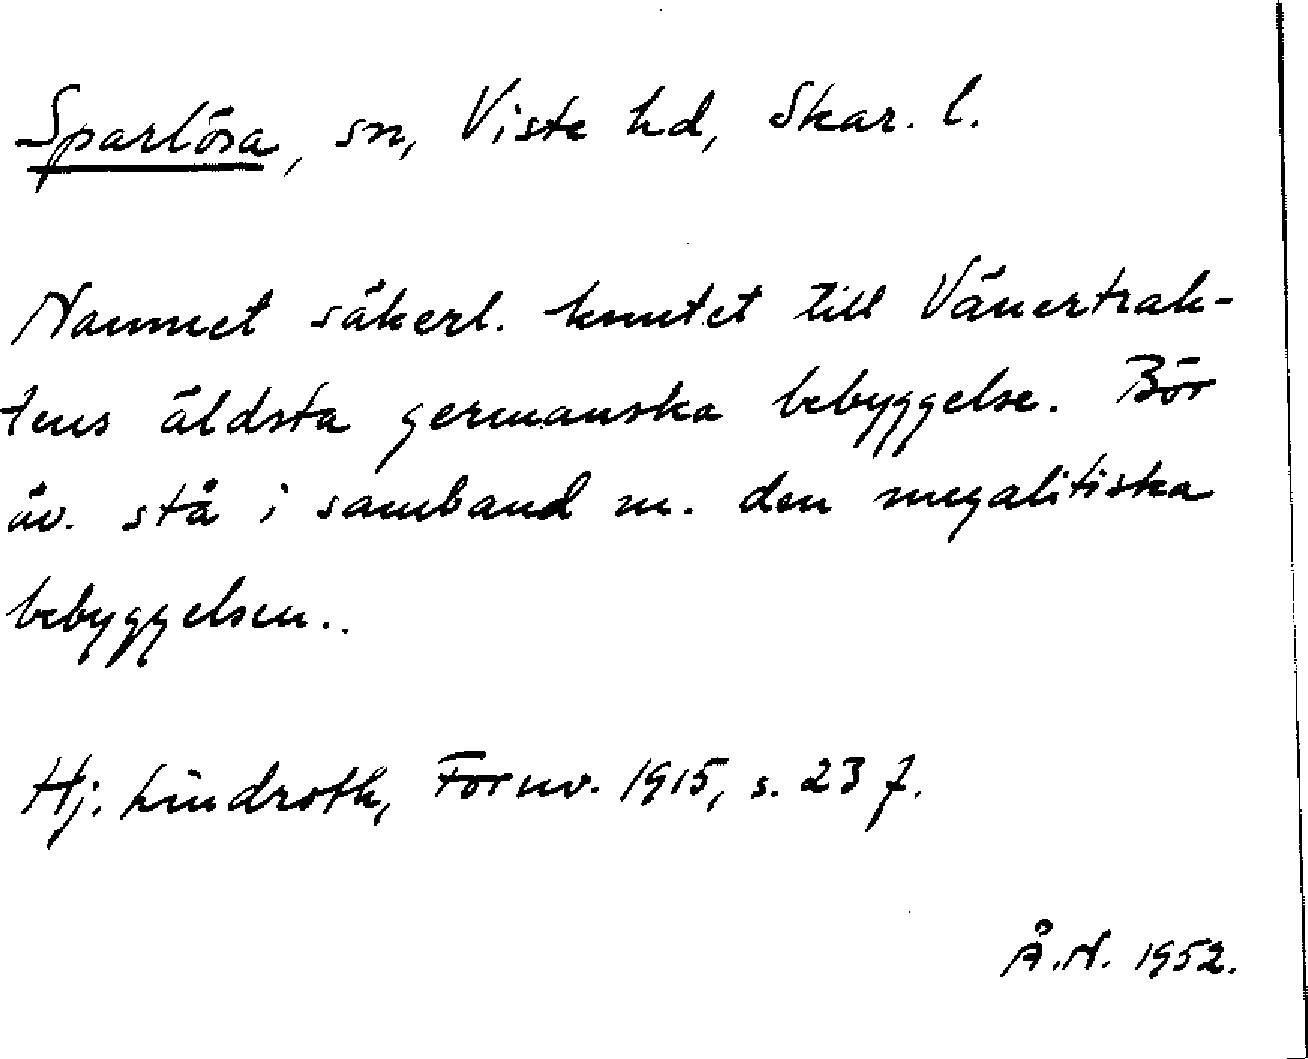 Sparlösa, sn, Viste hd, Skar. l.
Namnet säkerl. knutet till Vänertrak-
tens äldsta germanska bebyggelse. Bör
äv. stå i samband m. den megalitiska
bebyggelsen..
Hj. Lindroth, Fornv. 1915, s. 23 f.
Å.N. 1952.